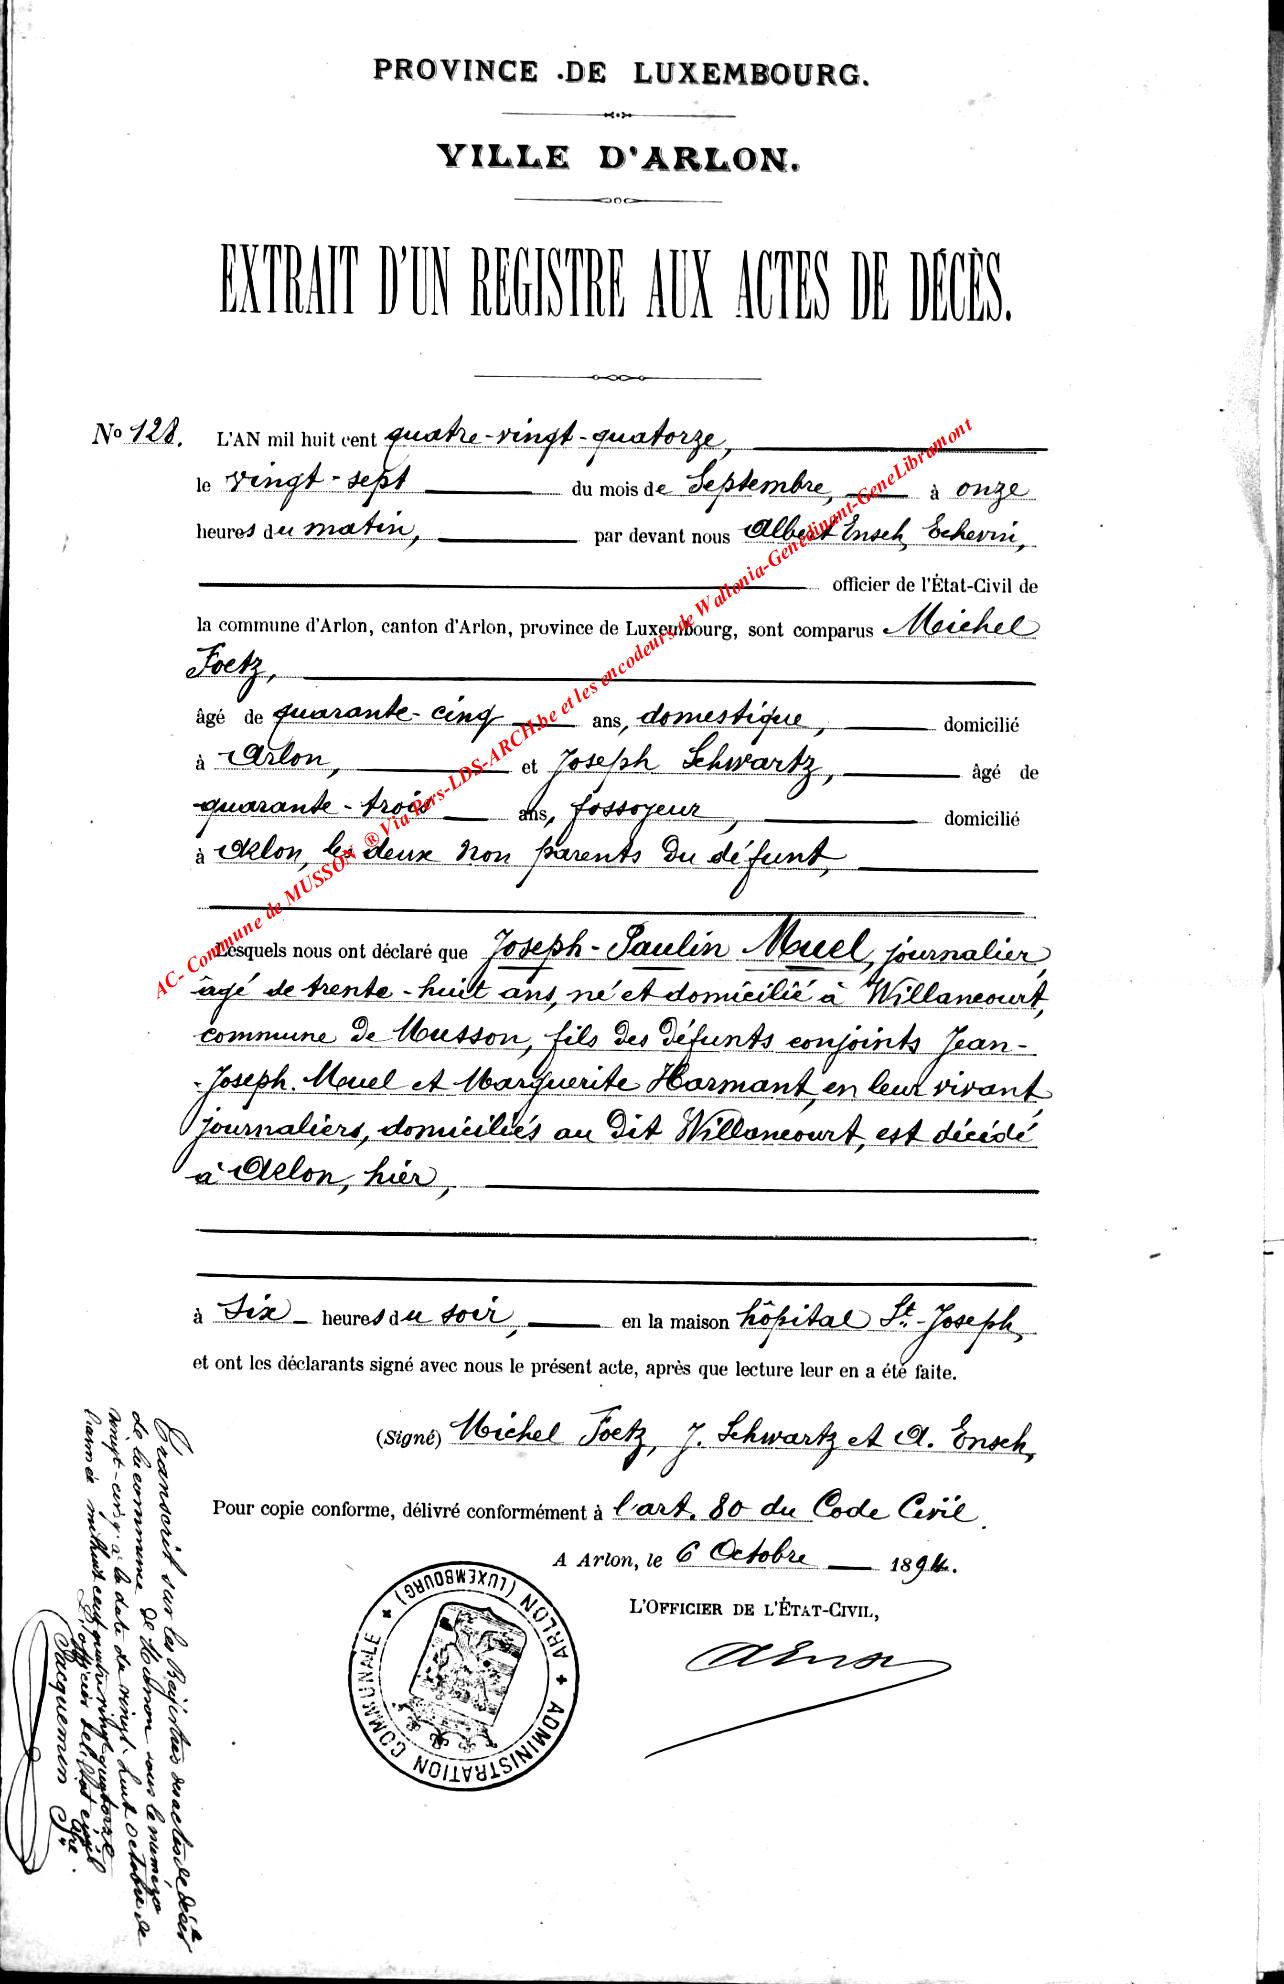 PROVINCE .DE LUXEMBOURG.
VILLE D'ARLON.
EXTRAIT D'UN REGISTRE AUX ACTES DE DÉCÈS.
No 128. L'AN mil huit cent quatre-vingt-quatorze,
le vingt-sept du mois de Septembre, à onze
heures du matin, par devant nous Albert Ensch, Echevin,
officier de l'État-Civil de
la commune d'Arlon, canton d'Arlon, province de Luxembourg, sont comparus Michel
Foetz,
âgé de quarante-cinq ans, domestique, domicilié
à Arlon, et Joseph Schwartz, âgé de
quarante-trois ans, fossoyeur, domicilié
à Arlon, les deux non parents du défunt,
Lesquels nous ont déclaré que Joseph-Paulin Muel, journalier,
âgé de trente-huit ans, né et domicilié à Willancourt,
commune de Musson, fils des défunts conjoints Jean-
-Joseph Muel et Marguerite Harmant, en leur vivant
journaliers, domiciliés au dit Willancourt, est décédé
à Arlon, hier,
à six heures du soir, en la maison hôpital St.-Joseph,
et ont les déclarants signé avec nous le présent acte, après que lecture leur en a été faite.
(Signé) Michel Foetz, J. Schwartz et A. Ensch,
Pour copie conforme, délivré conformément à l'art. 80 du Code Civil.
A Arlon, le 6 Octobre 1894.
L'OFFICIER DE L'ÉTAT-CIVIL,
AEnsch
ADMINISTRATION COMMUNALE + ARLON (LUXEMBOURG) +
Transcrit sur les Registres des actes de décès
de la commune de Musson sous le numéro
vingt-cinq à la date du vingt-huit octobre de
l'année mil huit cent quatre vingt quatorze
L'officier de l'État civil
Jacquemin
AC- Commune de MUSSON ® Via Pers-LDS-ARCH.be et les encodeurs de Wallonia-Genedinant-GeneLibramont